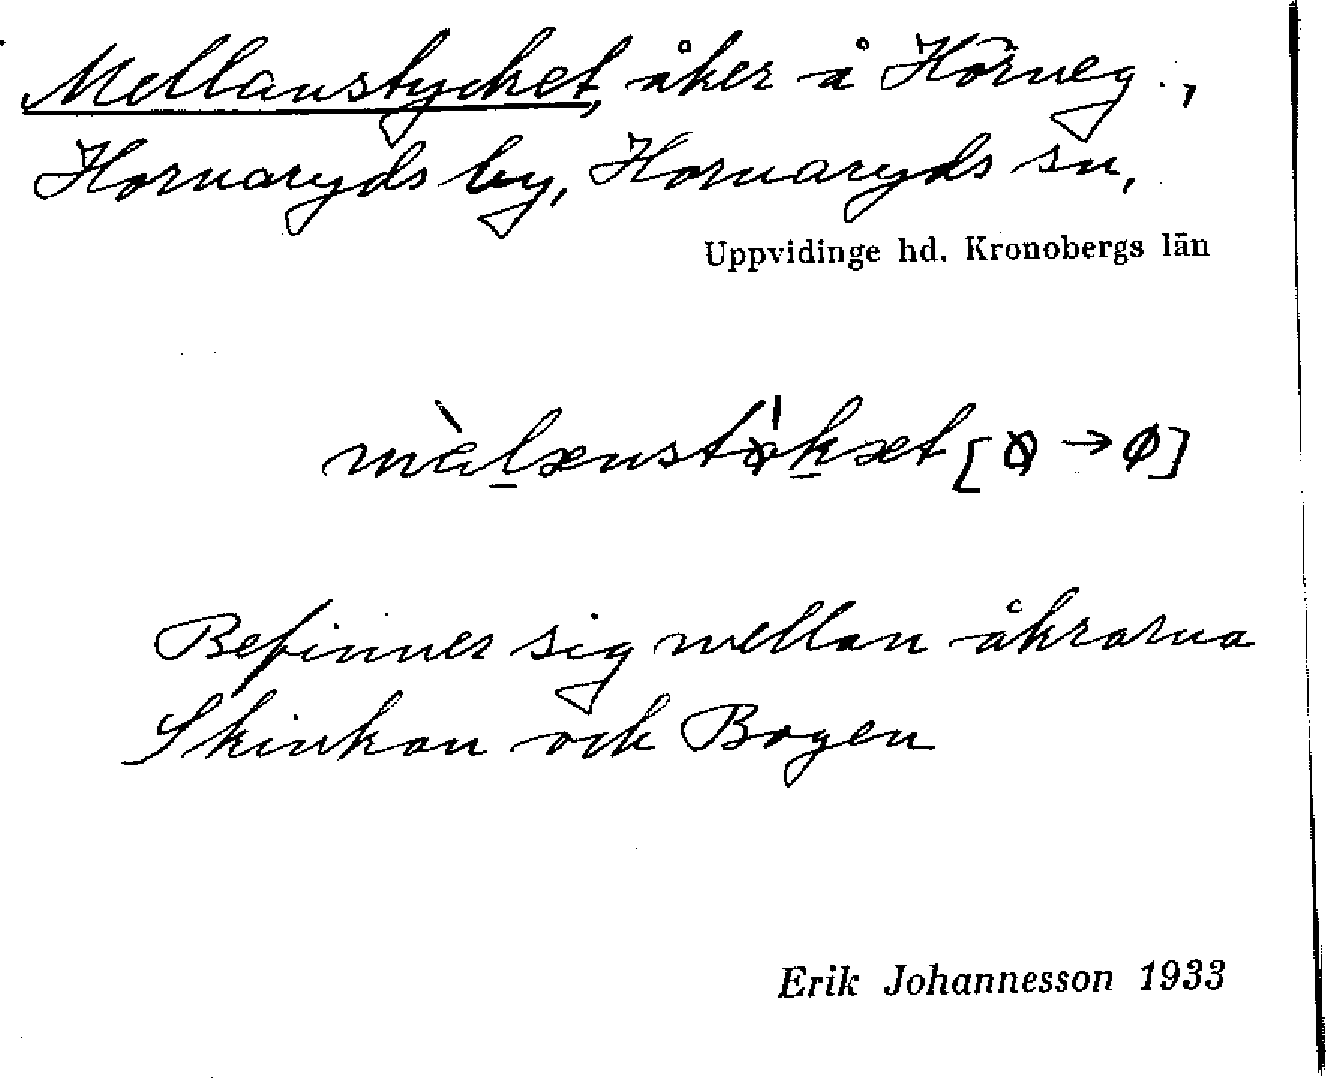 Mellanstycket, åker å Hörneg.,
Hornaryds by, Hornaryds sn,
Uppvidinge hd. Kronobergs län
[ → ø]
Befinner sig mellan åkrarna
Skinkan och Bogen
Erik Johannesson 1933